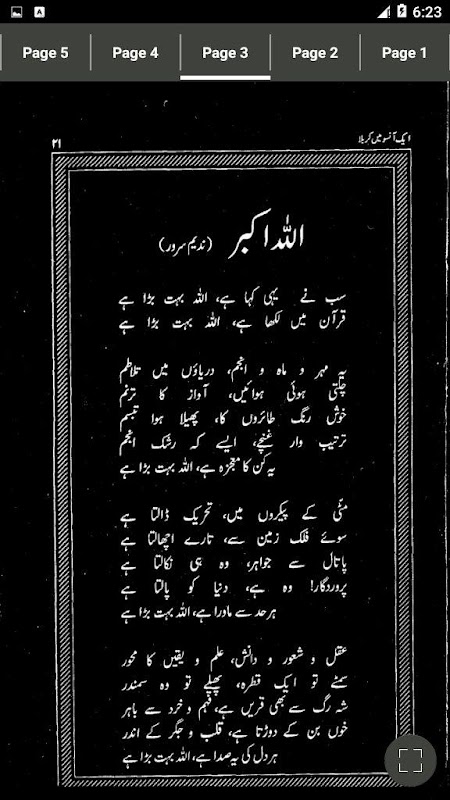 6:23
Page 5 Page 4 Page 3 Page 2 Page 1
ایک آنسو میں کربلا
۲۱
اللہ اکبر (ندیم سرور)
سب نے یہی کہا ہے، اللہ بہت بڑا ہے
قرآن میں لکھا ہے، اللہ بہت بڑا ہے
یہ مہر و ماہ و انجم، دریاؤں میں تلاطم
چلتی ہوئی ہوائیں، آواز کا ترنم
خوش رنگ طائروں کا، پھیلا ہوا تبسم
ترتیب وار غنچے، ایسے کہ رشک انجم
یہ کن کا معجزہ ہے، اللہ بہت بڑا ہے
مٹی کے پیکروں میں، تحریک ڈالتا ہے
سوئے فلک زمین سے، تارے اچھالتا ہے
پاتال سے جواہر، وہ ہی نکالتا ہے
پروردگار! وہ ہے، دنیا کو پالتا ہے
ہر حد سے ماورا ہے، اللہ بہت بڑا ہے
عقل و شعور و دانش، علم و یقیں کا محور
سمٹے تو ایک قطرہ، پھیلے تو وہ سمندر
شہ رگ سے بھی قریں ہے، فہم و خرد سے باہر
خوں بن کے دوڑتا ہے، قلب و جگر کے اندر
ہر دل کی یہ صدا ہے، اللہ بہت بڑا ہے